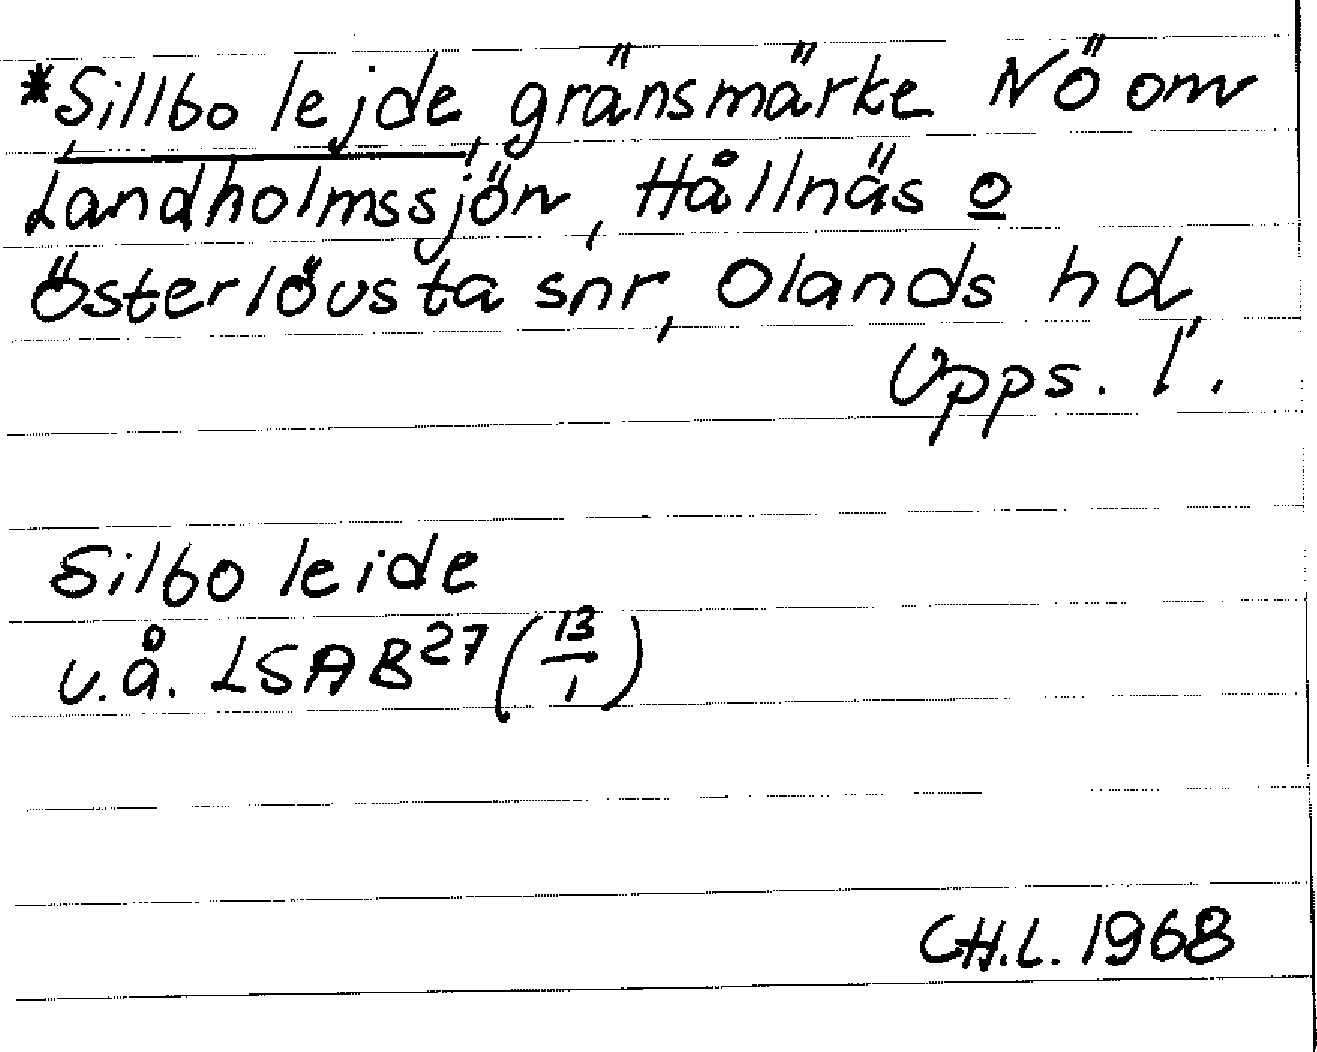 *Sillbo lejde, gränsmärke NÖ om
Landholmssjön, Hållnäs o
Österlövsta snr, Olands hd,
Upps. l.
Silbo leide
u.å. LSA B27 (13/1)
CH.L. 1968